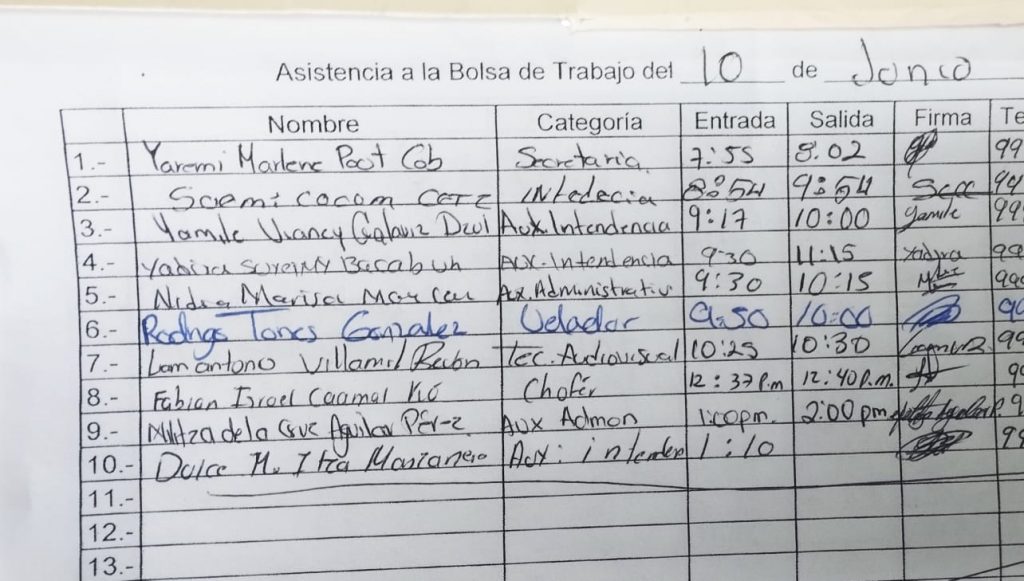 Asistencia a la Bolsa de Trabajo del 10 de Jonio
Nombre Categoría Entrada Salida Firma Te
1.- Yaremi Marlene Poot Cob Secretaria 7:55 8:02 99
2.- Saemi cocom INtedecia 8:54 9:54 99
3.- Yamile Aux.Intendencia 9:17 10:00 yamile 99
4.- Aux.Intendencia 9:30 11:15 99
5.- Nidia Marisa Aux.Administrativ 9:30 10:15 99
6.- Rodrigo Torres Gonzalez Velador 9:50 10:00 9
7.- Villamil Tec.Audiovisual 10:25 10:30 99
8.- Fabian Israel Caamal Kú Chofer 12:37 P.m 12:40 P.m. 9
9.- de la Cruz Aguilar Pérez Aux Admon 1:00pm. 2:00 pm 9
10.- Dulce M. Itza Manzanero Aux: intenden 1:10 99
11.-
12.-
13.-